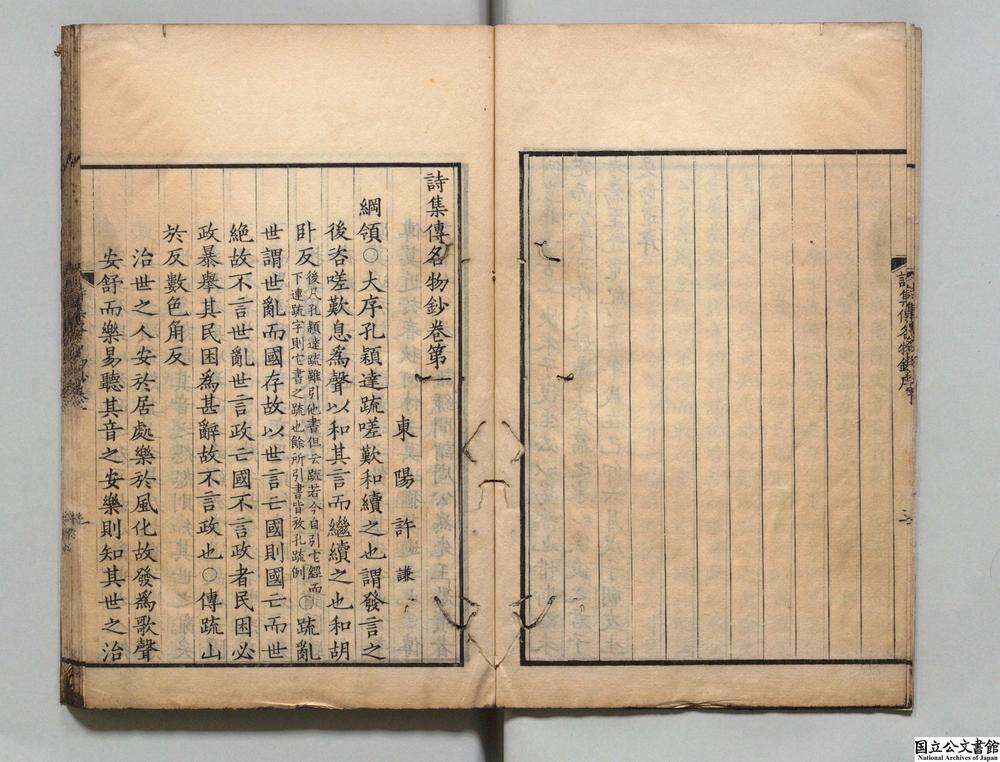 詩集傳名物鈔卷第一
東陽許謙
綱領○大序孔穎達疏嗟歎和續之也謂發言之
後咨嗟歎息爲聲以和其言而繼續之也和胡
卧反後凡孔穎達疏雖引他書但云疏若今自引它經而
下連疏字則它書之疏也餘所引書皆放孔疏例○疏亂
世謂世亂而國存故以世言亡國則國亡而世
絶故不言世亂世言政亡國不言政者民困必
政暴舉其民困爲甚辭故不言政也○傳疏山
於反數色角反
治世之人安於居處樂於風化故發爲歌聲
安舒而樂易聽其音之安樂則知其世之治
国立公文書館
National Archives of Japan